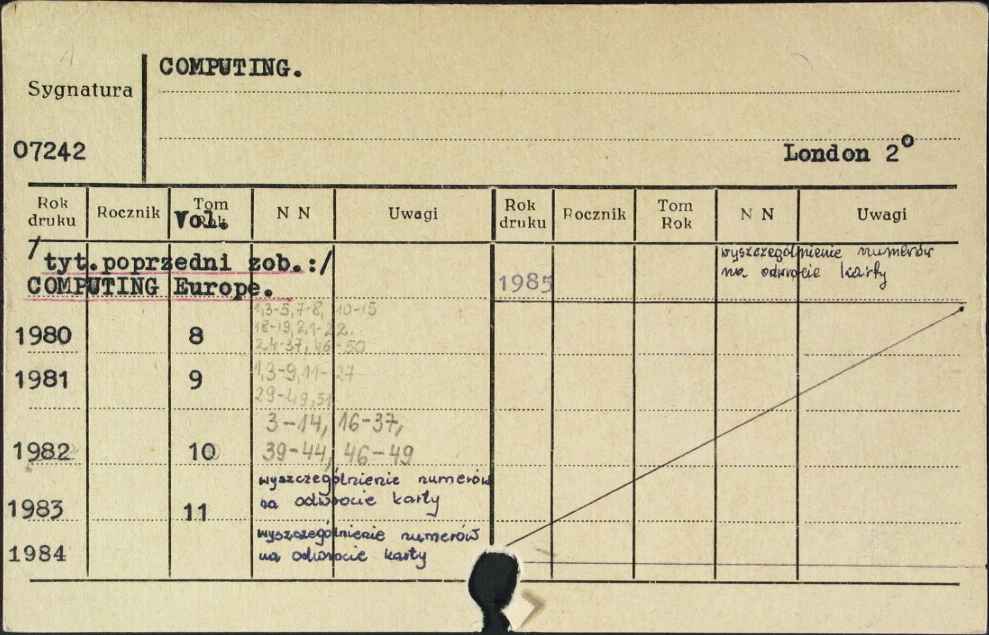 COMPUTING.
Sygnatura
07242
London 2°
Rok druku Rocznik Tom Rok Vol. N N Uwagi Rok druku Rocznik Tom Rok N N Uwagi
/tyt.poprzedni zob.:/
COMPUTING Europe.
1985 wyszczególnienie numerów
na odwrocie karty
1,3-5,7-8, 10-15
1980 8 18-19,21-22.
24-37, 46-50
1981 9 1,3-9,11-27
29-49,51
3-14, 16-37,
1982 10 39-44, 46-49
wyszczególnienie numerów
1983 11 na odwrocie karty
wyszczególnienie numerów
1984 na odwrocie karty